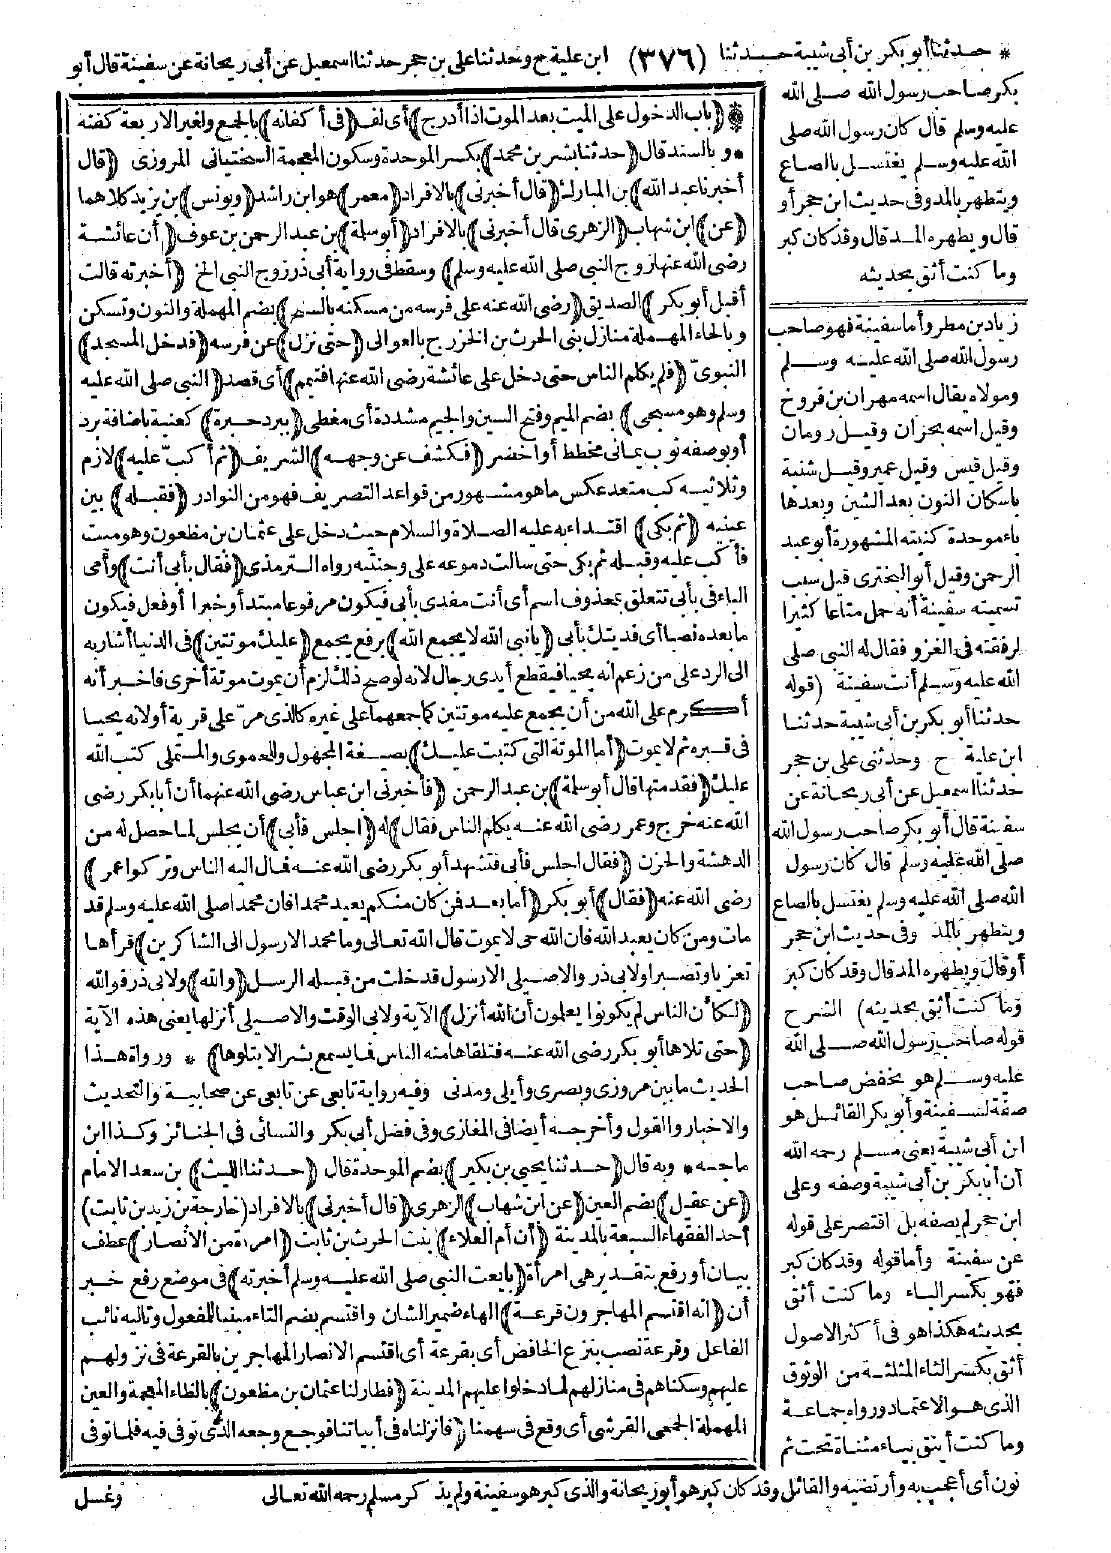 * حدثنا أبو بكر بن أبي شيبة حدثنا (٣٧٦) ابن علية ح وحدثنا علي بن حجر حدثنا اسمعيل عن أبي ريحانة عن سفينة قال أبو
بكر صاحب رسول الله صلى الله
عليه وسلم قال كان رسول الله صلى
الله عليه وسلم يغتسل بالصاع
ويتطهر بالمد وفي حديث ابن حجر أو
قال ويطهره المد قال وقد كان كبر
وما كنت أثق بحديثه
زياد بن مطر وأما سفينة فهو صاحب
رسول الله صلى الله عليه وسلم
ومولاه يقال اسمه مهران بن فروخ
وقيل اسمه بحران وقيل رومان
وقيل قيس وقيل عمير وقيل شنبة
باسكان النون بعد الشين وبعدها
باء موحدة كنيته المشهورة أبو عبد
الرحمن وقيل أبو البختري قيل سبب
تسميته سفينة أنه حمل متاعا كثيرا
لرفقته في الغزو فقال له النبي صلى
الله عليه وسلم أنت سفينة (قوله
حدثنا أبو بكر بن أبي شيبة حدثنا
ابن علية ح وحدثني علي بن حجر
حدثنا اسمعيل عن أبي ريحانة عن
سفينة قال أبو بكر صاحب رسول الله
صلى الله عليه وسلم قال كان رسول
الله صلى الله عليه وسلم يغتسل بالصاع
ويتطهر بالمد وفي حديث ابن حجر
أو قال ويطهره المد قال وقد كان كبر
وما كنت أثق بحديثه) الشرح
قوله صاحب رسول الله صلى الله
عليه وسلم هو بخفض صاحب
صفة لسفينة وأبو بكر القائل هو
ابن أبي شيبة يعني مسلم رحمه الله
أن أبا بكر بن أبي شيبة وصفه وعلي
ابن حجر لم يصفه بل اقتصر على قوله
عن سفينة وأما قوله وقد كان كبر
فهو بكسر الباء وما كنت أثق
بحديثه هكذا هو في أكثر الاصول
أثق بكسر الثاء المثلثة من الوثوق
الذي هو الاعتماد ورواه جماعة
وما كنت أينق بياء مثناة تحت ثم
نون أي أعجب به وأرتضيه والقائل وقد كان كبر هو أبو ريحانة والذي كبر هو سفينة ولم يذكر مسلم رحمه الله تعالى
* (باب الدخول على الميت بعد الموت اذا أدرج) أي لف (في أكفانه) بالجمع ولغير الاربعة كفنه
* وبالسند قال (حدثنا بشر بن محمد) بكسر الموحدة وسكون المعجمة السختياني المروزي (قال
أخبرنا عبد الله) بن المبارك (قال أخبرني) بالافراد (معمر) هو ابن راشد (ويونس) بن يزيد كلاهما
(عن) ابن شهاب (الزهري قال أخبرني) بالافراد (أبو سلمة) بن عبد الرحمن بن عوف (أن عائشة
رضي الله عنها زوج النبي صلى الله عليه وسلم) وسقط في رواية أبي ذر زوج النبي الخ (أخبرته قالت
أقبل أبو بكر) الصديق (رضي الله عنه على فرسه من مسكنه بالسنح) بضم المهملة والنون وتسكن
وبالحاء المهملة منازل بني الحرث بن الخزرج بالعوالي (حتى نزل) عن فرسه (فدخل المسجد)
النبوي (فلم يكلم الناس حتى دخل على عائشة رضي الله عنها فتيمم) أي قصد (النبي صلى الله عليه
وسلم وهو مسجى) بضم الميم وفتح السين والجيم مشددة أي مغطى (ببرد حبرة) كعنبة باضافة برد
أو بوصفه ثوب يماني مخطط أو اخضر (فكشف عن وجهه) الشريف (ثم أكب عليه) لازم
وثلاثيه كب متعد عكس ما هو مشهور من قواعد التصريف فهو من النوادر (فقبله) بين
عينيه (ثم بكى) اقتداء به عليه الصلاة والسلام حيث دخل على عثمان بن مظعون وهو ميت
فأكب عليه وقبله ثم بكى حتى سالت دموعه على وجنتيه رواه الترمذي (فقال بأبي أنت) وأمي
الباء في بأبي تتعلق بمحذوف اسم أي أنت مفدى بأبي فيكون مرفوعا مبتدأ وخبرا أو فعل فيكون
ما بعده نصبا أي فديتك بأبي (يا نبي الله لا يجمع الله) برفع يجمع (عليك موتتين) في الدنيا أشار به
الى الرد على من زعم أنه يحيا فيقطع أيدي رجال لانه لو صح ذلك لزم أن يموت موتة أخرى فاخبر أنه
أكرم على الله من أن يجمع عليه موتتين كما جمعهما على غيره كالذي مر على قرية أو لانه يحيا
في قبره ثم لا يموت (أما الموتة التي كتبت عليك) بصيغة المجهول وللحموي والمستملي كتب الله
عليك (فقد متها قال أبو سلمة) بن عبد الرحمن (فأخبرني ابن عباس رضي الله عنهما أن أبا بكر رضي
الله عنه خرج وعمر رضي الله عنه يكلم الناس فقال) له (اجلس فأبى) أن يجلس لما حصل له من
الدهشة والحزن (فقال اجلس فأبى فتشهد أبو بكر رضي الله عنه فمال اليه الناس وتركوا عمر)
رضي الله عنه (فقال) أبو بكر (أما بعد فمن كان منكم يعبد محمدا فان محمدا صلى الله عليه وسلم قد
مات ومن كان يعبد الله فان الله حي لا يموت قال الله تعالى وما محمد الا رسول الى الشاكرين) قرأها
تعزيا وتصبرا ولابي ذر والاصيلي الا رسول قد خلت من قبله الرسل (والله) ولابي ذر فوالله
(لكأن الناس لم يكونوا يعلمون أن الله أنزل) الآية ولابي الوقت والاصيلي أنزلها يعني هذه الآية
(حتى تلاها أبو بكر رضي الله عنه فتلقاها منه الناس فما يسمع بشر الا يتلوها) * ورواة هذا
الحديث ما بين مروزي وبصري وأيلي ومدني وفيه رواية تابعي عن تابعي عن صحابية والتحديث
والاخبار والقول وأخرجه أيضا في المغازي وفي فضل أبي بكر والنسائي في الجنائز وكذا ابن
ماجه * وبه قال (حدثنا يحيى بن بكير) بضم الموحدة قال (حدثنا الليث) بن سعد الامام
(عن عقيل) بضم العين (عن ابن شهاب) الزهري (قال أخبرني) بالافراد (خارجة بن زيد بن ثابت)
أحد الفقهاء السبعة بالمدينة (أن أم العلاء) بنت الحرث بن ثابت (امرأة من الأنصار) عطف
بيان أو رفع بتقدير هي امرأة (بايعت النبي صلى الله عليه وسلم أخبرته) في موضع رفع خبر
أن (انه اقتسم المهاجرون قرعة) الهاء ضمير الشان واقتسم بضم التاء مبنيا للمفعول وتاليه نائب
الفاعل وقرعة نصب بنزع الخافض أي بقرعة أي اقتسم الانصار المهاجرين بالقرعة في نزولهم
عليهم وسكناهم في منازلهم لما دخلوا عليهم المدينة (فطار لنا عثمان بن مظعون) بالظاء المعجمة والعين
المهملة الجمحي القرشي أي وقع في سهمنا (فانزلناه في أبياتنا فوجع وجعه الذي توفي فيه فلما توفي
وغسل